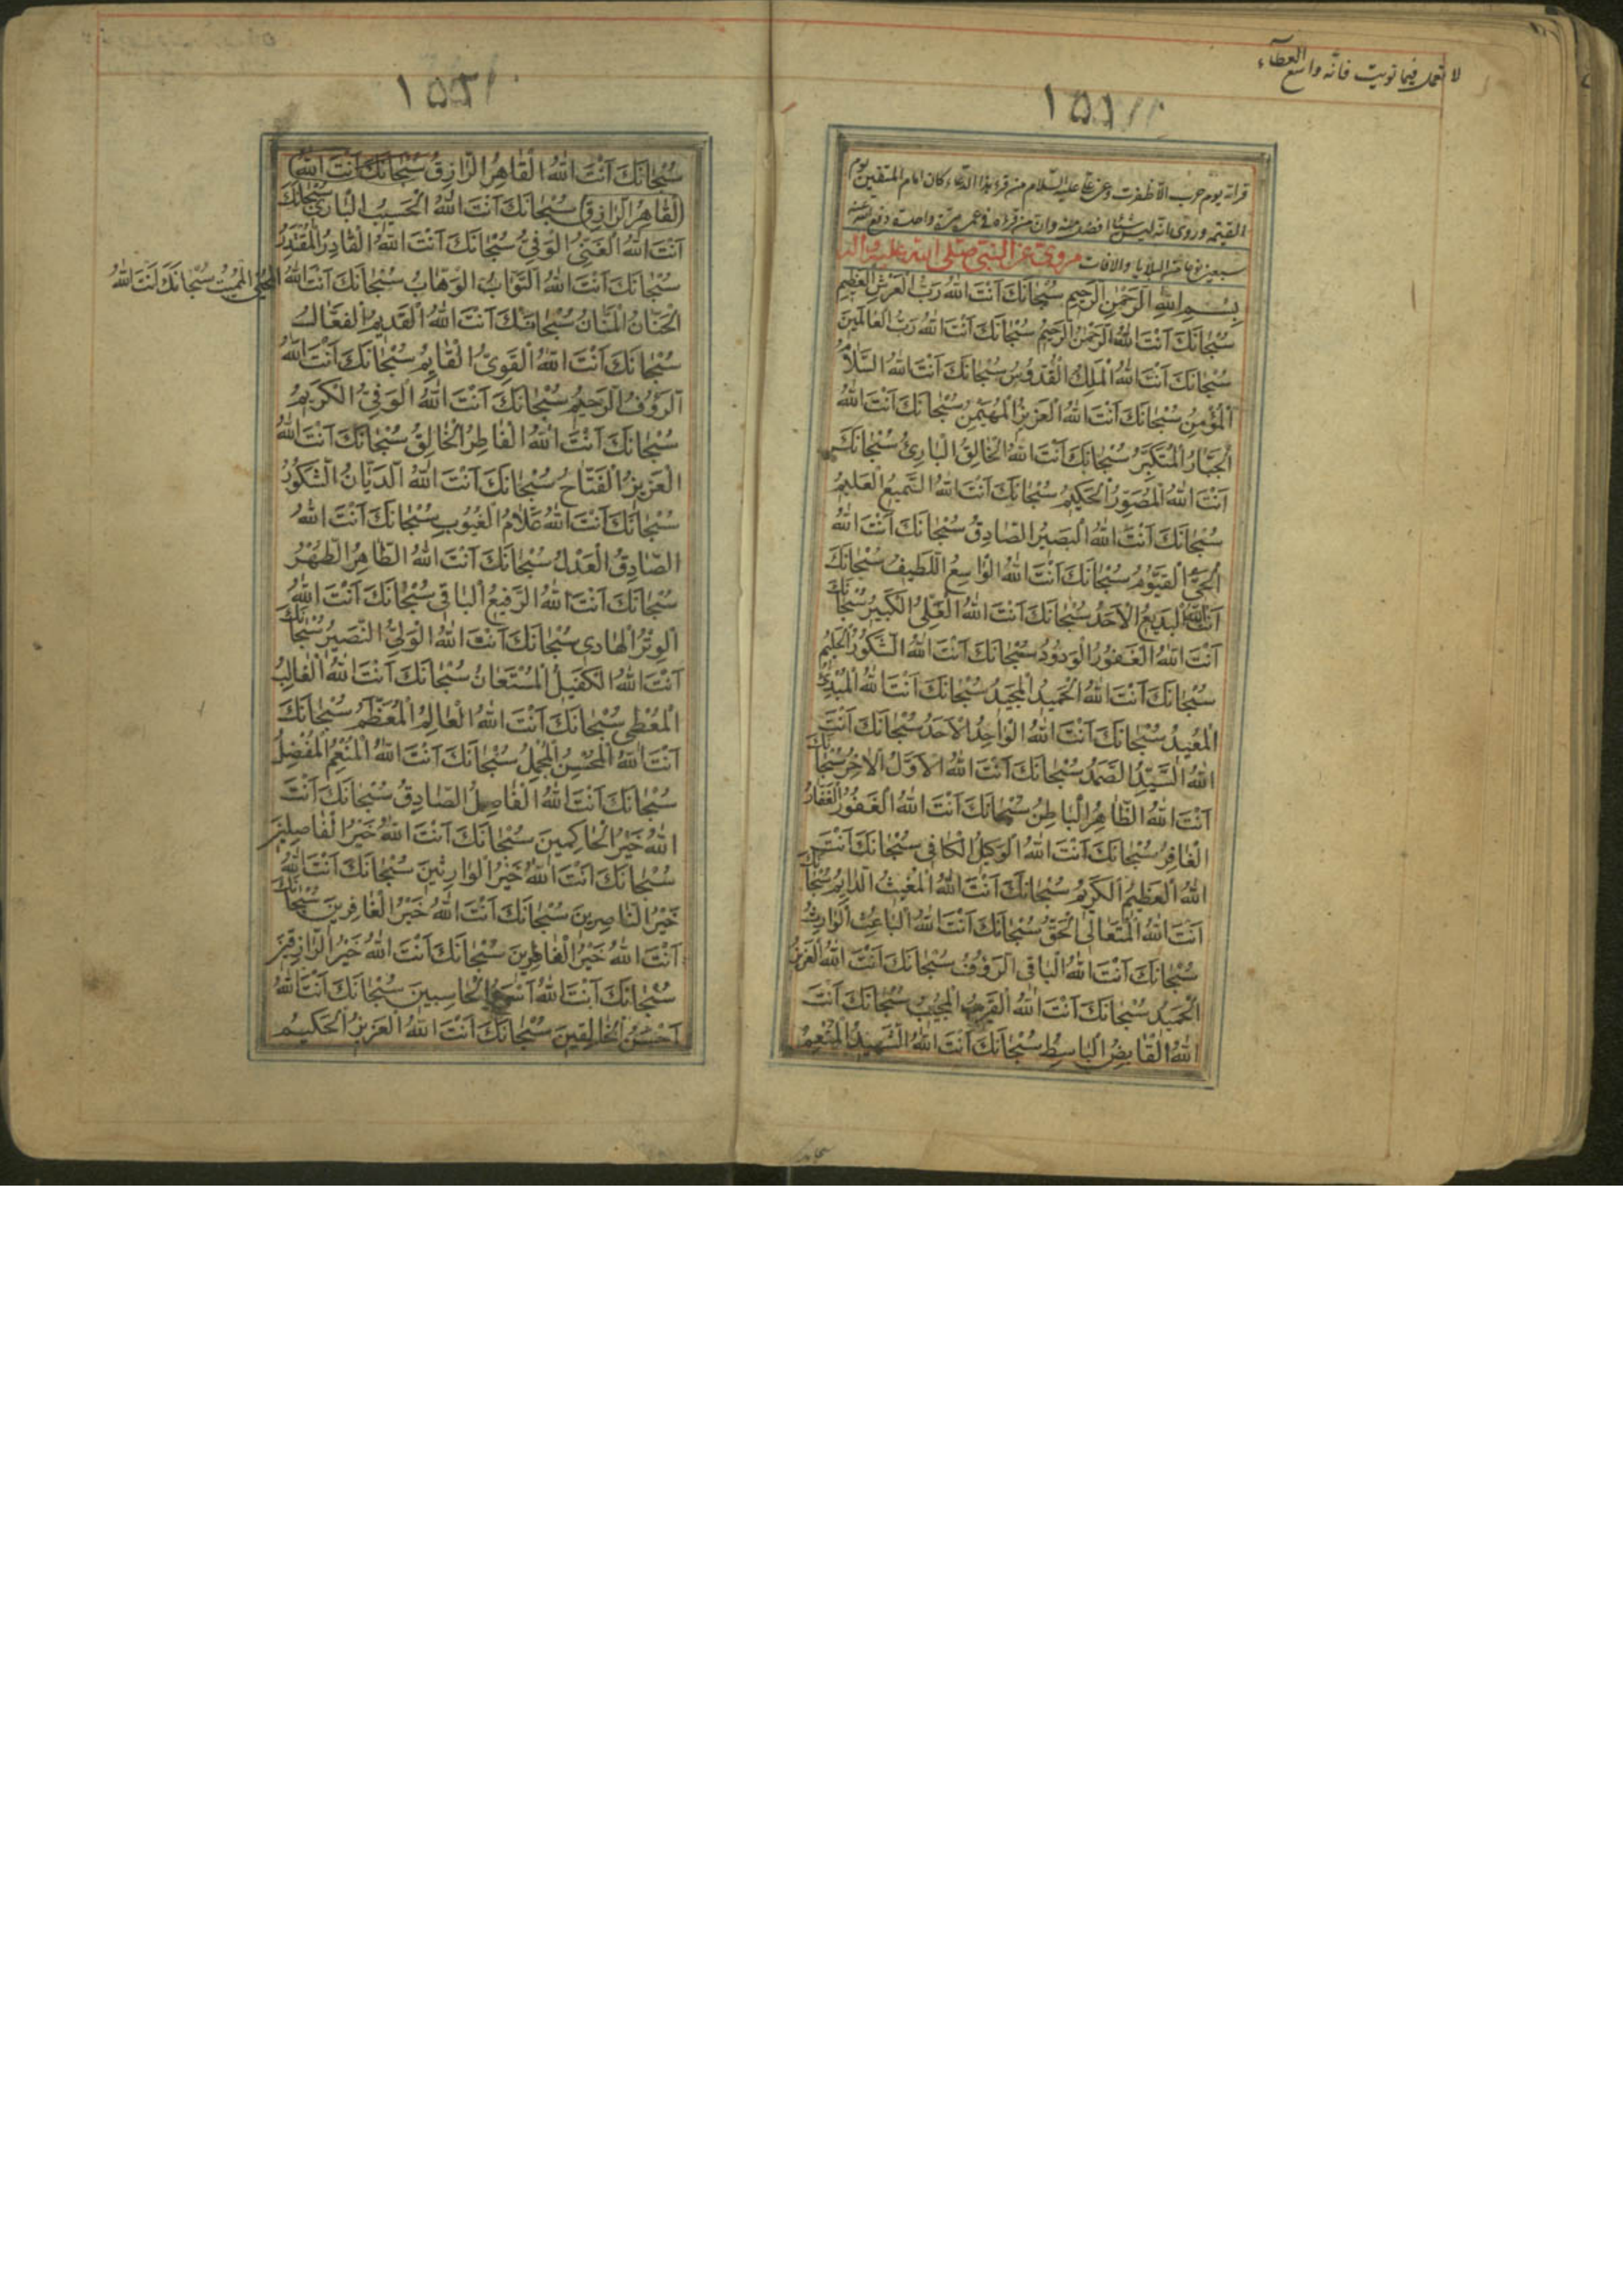 لا تعمل فيما نويت فانه واسع العطآء
١٥١
قرائه يوم حرب الا ظفرت وعن علي عليه السلام من قرء هذا الدعاء كان امام المتقين يوم
القيمة وروى انه ليس شيئا افضل منه وان من قراه في عمره مرة واحدة دفع الله عنه
سبعين نوعا من البلايا والافات مروي عن النبي صلى الله عليه واله
بِسْمِ اللهِ الرَّحْمٰنِ الرَّحِيمِ سُبْحَانَكَ اَنْتَ اللهُ رَبُّ الْعَرْشِ الْعَظِيمِ
سُبْحَانَكَ اَنْتَ اللهُ الرَّحْمٰنُ الرَّحِيمُ سُبْحَانَكَ اَنْتَ اللهُ رَبُّ الْعَالَمِينَ
سُبْحَانَكَ اَنْتَ اللهُ الْمَلِكُ الْقُدُّوسُ سُبْحَانَكَ اَنْتَ اللهُ السَّلاَمُ
الْمُؤْمِنُ سُبْحَانَكَ اَنْتَ اللهُ الْعَزِيزُ الْمُهَيْمِنُ سُبْحَانَكَ اَنْتَ اللهُ
الْجَبَّارُ الْمُتَكَبِّرُ سُبْحَانَكَ اَنْتَ اللهُ الْخَالِقُ الْبَارِئُ سُبْحَانَكَ
اَنْتَ اللهُ الْمُصَوِّرُ الْحَكِيمُ سُبْحَانَكَ اَنْتَ اللهُ السَّمِيعُ الْعَلِيمُ
سُبْحَانَكَ اَنْتَ اللهُ الْبَصِيرُ الصَّادِقُ سُبْحَانَكَ اَنْتَ اللهُ
الْحَيُّ الْقَيُّومُ سُبْحَانَكَ اَنْتَ اللهُ الْوَاسِعُ اللَّطِيفُ سُبْحَانَكَ
اَنْتَ اللهُ الْبَدِيعُ الْاَحَدُ سُبْحَانَكَ اَنْتَ اللهُ الْعَلِيُّ الْكَبِيرُ سُبْحَانَكَ
اَنْتَ اللهُ الْغَفُورُ الْوَدُودُ سُبْحَانَكَ اَنْتَ اللهُ الشَّكُورُ الْحَلِيمُ
سُبْحَانَكَ اَنْتَ اللهُ الْحَمِيدُ الْمَجِيدُ سُبْحَانَكَ اَنْتَ اللهُ الْمُبْدِئُ
الْمُعِيدُ سُبْحَانَكَ اَنْتَ اللهُ الْوَاحِدُ الْاَحَدُ سُبْحَانَكَ اَنْتَ
اللهُ السَّيِّدُ الصَّمَدُ سُبْحَانَكَ اَنْتَ اللهُ الْاَوَّلُ الْاٰخِرُ سُبْحَانَكَ
اَنْتَ اللهُ الظَّاهِرُ الْبَاطِنُ سُبْحَانَكَ اَنْتَ اللهُ الْغَفُورُ الْغَفَّارُ
الْغَافِرُ سُبْحَانَكَ اَنْتَ اللهُ الْوَكِيلُ الْكَافِي سُبْحَانَكَ اَنْتَ
اللهُ الْعَظِيمُ الْكَرِيمُ سُبْحَانَكَ اَنْتَ اللهُ الْمُغِيثُ الدَّايِمُ سُبْحَانَكَ
اَنْتَ اللهُ الْمُتَعَالِي الْحَقُّ سُبْحَانَكَ اَنْتَ اللهُ الْبَاعِثُ الْوَارِثُ
سُبْحَانَكَ اَنْتَ اللهُ الْبَاقِي الرَّؤُفُ سُبْحَانَكَ اَنْتَ اللهُ الْعَزِيزُ
الْحَمِيدُ سُبْحَانَكَ اَنْتَ اللهُ الْقَرِيبُ الْمُجِيبُ سُبْحَانَكَ اَنْتَ
اللهُ الْقَابِضُ الْبَاسِطُ سُبْحَانَكَ اَنْتَ اللهُ الشَّهِيدُ الْمُنْعِمُ
سبحانك
١٥٢
سُبْحَانَكَ اَنْتَ اللهُ الْقَاهِرُ الرَّازِقُ سُبْحَانَكَ اَنْتَ اللهُ
الْقَاهِرُ الرَّازِقُ سُبْحَانَكَ اَنْتَ اللهُ الْحَسِيبُ الْبَارِئُ سُبْحَانَكَ
اَنْتَ اللهُ الْغَنِيُّ الْوَفِيُّ سُبْحَانَكَ اَنْتَ اللهُ الْقَادِرُ الْمُقْتَدِرُ
سُبْحَانَكَ اَنْتَ اللهُ التَّوَّابُ الْوَهَّابُ سُبْحَانَكَ اَنْتَ اللهُ الْمُحْيِي الْمُمِيتُ سُبْحَانَكَ اَنْتَ اللهُ
الْحَنَّانُ الْمَنَّانُ سُبْحَانَكَ اَنْتَ اللهُ الْقَدِيمُ الْفَعَّالُ
سُبْحَانَكَ اَنْتَ اللهُ الْقَوِيُّ الْقَايِمُ سُبْحَانَكَ اَنْتَ اللهُ
الرَّؤُفُ الرَّحِيمُ سُبْحَانَكَ اَنْتَ اللهُ الْوَفِيُّ الْكَرِيمُ
سُبْحَانَكَ اَنْتَ اللهُ الْفَاطِرُ الْخَالِقُ سُبْحَانَكَ اَنْتَ اللهُ
الْعَزِيزُ الْفَتَّاحُ سُبْحَانَكَ اَنْتَ اللهُ الدَّيَّانُ الشَّكُورُ
سُبْحَانَكَ اَنْتَ اللهُ عَلَّامُ الْغُيُوبِ سُبْحَانَكَ اَنْتَ اللهُ
الصَّادِقُ الْعَدْلُ سُبْحَانَكَ اَنْتَ اللهُ الطَّاهِرُ الطُّهْرُ
سُبْحَانَكَ اَنْتَ اللهُ الرَّفِيعُ الْبَاقِي سُبْحَانَكَ اَنْتَ اللهُ
الْوِتْرُ الْهَادِي سُبْحَانَكَ اَنْتَ اللهُ الْوَلِيُّ النَّصِيرُ سُبْحَانَكَ
اَنْتَ اللهُ الْكَفِيلُ الْمُسْتَعَانُ سُبْحَانَكَ اَنْتَ اللهُ الْغَالِبُ
الْمُعْطِي سُبْحَانَكَ اَنْتَ اللهُ الْعَالِمُ الْمُعَظَّمُ سُبْحَانَكَ
اَنْتَ اللهُ الْمُحْسِنُ الْمُجْمِلُ سُبْحَانَكَ اَنْتَ اللهُ الْمُنْعِمُ الْمُفْضِلُ
سُبْحَانَكَ اَنْتَ اللهُ الْفَاضِلُ الصَّادِقُ سُبْحَانَكَ اَنْتَ
اللهُ خَيْرُ الْحَاكِمِينَ سُبْحَانَكَ اَنْتَ اللهُ خَيْرُ الْفَاصِلِينَ
سُبْحَانَكَ اَنْتَ اللهُ خَيْرُ الْوَارِثِينَ سُبْحَانَكَ اَنْتَ اللهُ
خَيْرُ النَّاصِرِينَ سُبْحَانَكَ اَنْتَ اللهُ خَيْرُ الْغَافِرِينَ سُبْحَانَكَ
اَنْتَ اللهُ خَيْرُ الْفَاطِرِينَ سُبْحَانَكَ اَنْتَ اللهُ خَيْرُ الرَّازِقِينَ
سُبْحَانَكَ اَنْتَ اللهُ اَسْرَعُ الْحَاسِبِينَ سُبْحَانَكَ اَنْتَ اللهُ
اَحْسَنُ الْخَالِقِينَ سُبْحَانَكَ اَنْتَ اللهُ الْعَزِيزُ الْحَكِيمُ